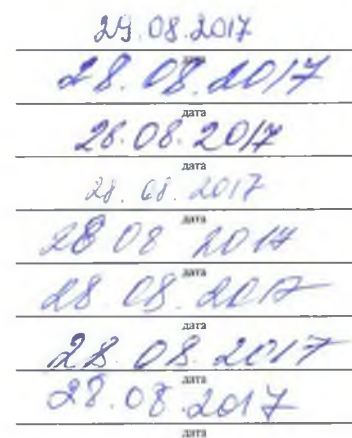 29.08.2017
дата
28.08.2017
дата
28.08.2017
дата
28.08.2017
дата
28 08 2017
дата
28.08.2017
дата
28.08.2017
дата
28.08.2017
дата